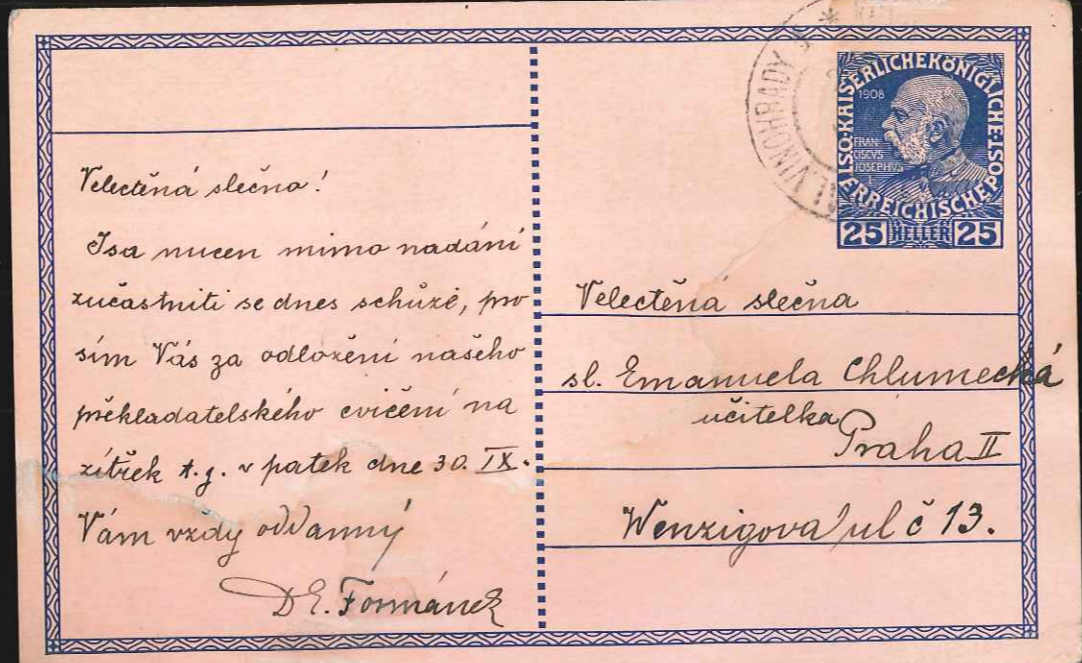 Velectěná slečno!
Jsa nucen mimo nadání
zučastniti se dnes schůzé, pro
sím Vás za odložení našeho
překladatelského cvičení na
zítřek t.j. v patek dne 30. IX.
Vám vždy oddanný
Dr. Formánek
VINOHRADY
KAISERLICHEKÖNIGLICHE
ÖSTERREICHISCHE POST
1908
FRAN
CISCVS
IOSEPHVS
I
25 HELLER 25
Velectěná slečna
sl. Emanuela Chlumecká
učitelka
Praha II
Wenzigova ul č 13.